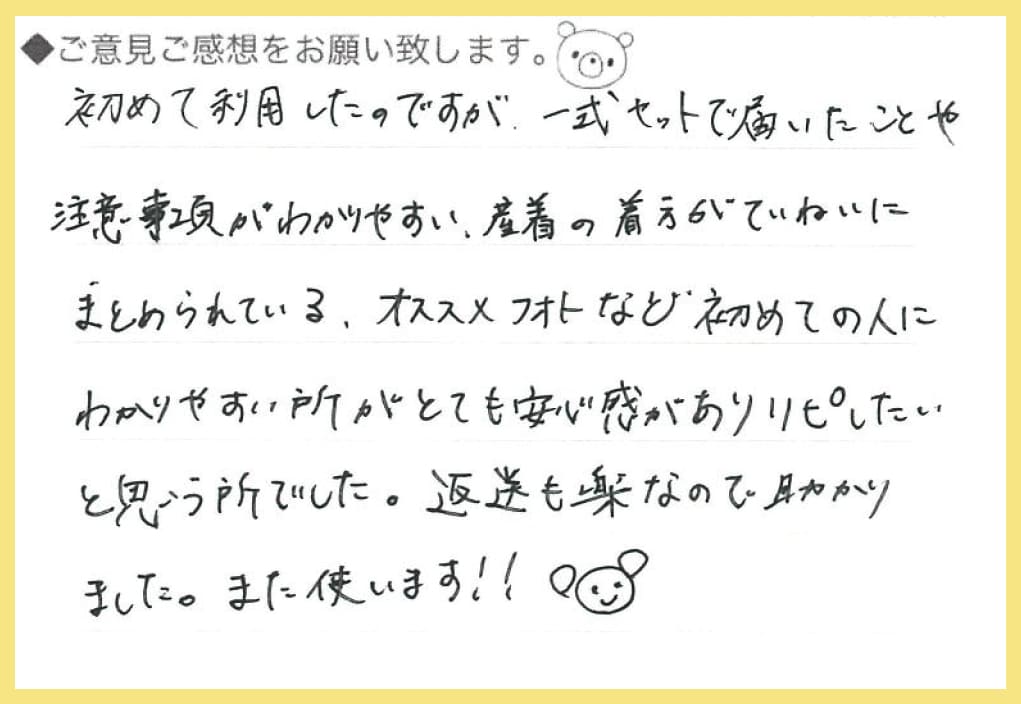 ◆ご意見ご感想をお願い致します。
初めて利用したのですが、一式セットで届いたことや
注意事項がわかりやすい、産着の着方がていねいに
まとめられている、オススメフォトなど初めての人に
わかりやすい所がとても安心感がありリピしたい
と思う所でした。返送も楽なので助かり
ました。また使います!!